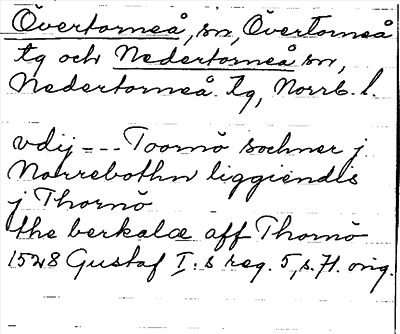 Övertorneå, sn, Övertorneå
tg och Nedertorneå sn,
Nedertorneå tg, Norrb. l.
vdij --- Toornö sochner j
Norrebothn liggiendis
j Thornö
the berkalæ aff Thornö
1528 Gustaf I:s reg. 5, s. 71. orig.